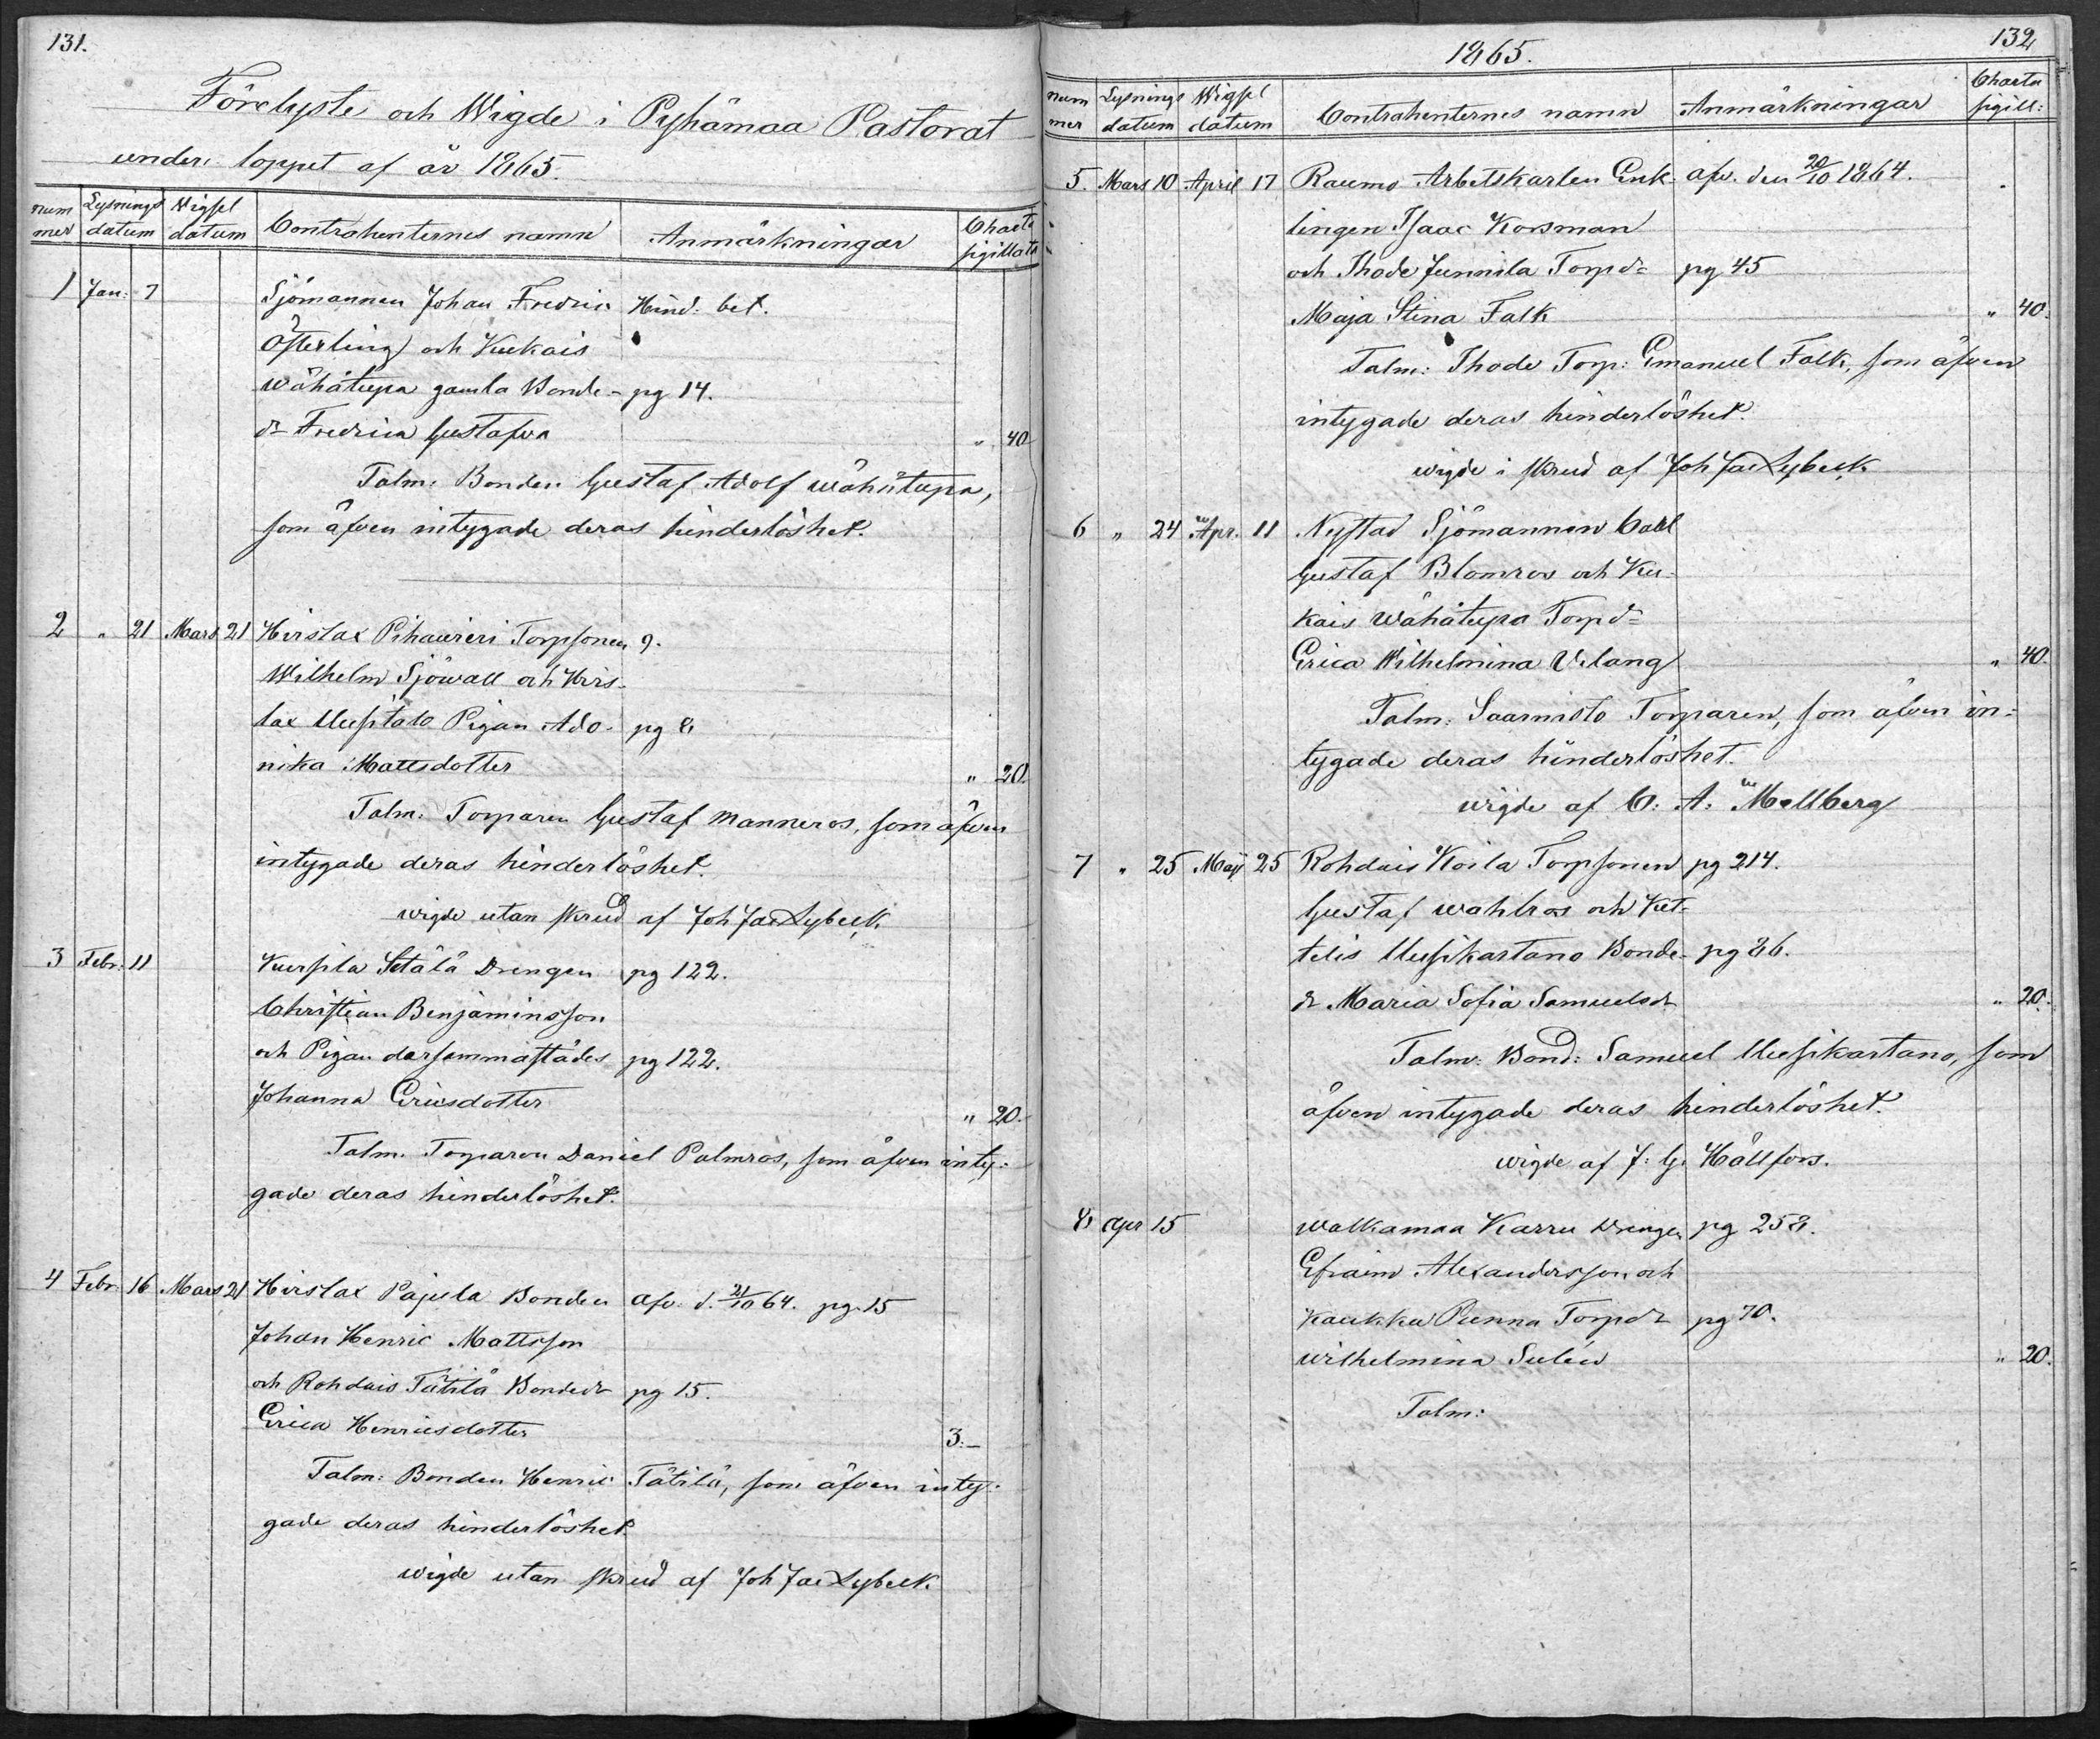 131.
Förelyste och Wigde i Pyhämaa Pastorat
under loppet af år 1865.
num mer Lysnings datum Wigsel datum Contrahenternes namn Anmärkningar Charta sigillata
1 Jan: 7 Sjömannen Johan Fredric Hind. bet.
Österling och Kukais
Wähätupa gamla Bonde- pg 14.
dr Fredrica Gustafva " 40
Talm: Bonden Gustaf Adolf Wähätupa,
som äfven intygade deras hinderlöshet.
2 " 21 Mars 21 Hirslax Pihawieri Torpsonen 9.
Wilhelm Sjöwall och Hirs-
lax Uusitalo Pigan Ado- pg 8
nika Mattsdotter " 20.
Talm: Torparen Gustaf Manneros, som äfven
intygade deras hinderlöshet.
wigde utan skrud af Joh Jac Lybeck.
3 Febr: 11 Kursila Sätälä Drengen pg 122.
Christian Benjaminsson
och Pigan dersammastädes pg 122.
Johanna Ericsdotter " 20.
Talm. Torparen Daniel Palmros, som äfven inty-
gade deras hinderlöshet.
4 Febr: 16 Mars 21 Hirslax Pajula Bonden afv. d. 21/10 64. pg. 15
Johan Henric Mattsson
och Rohdais Tätilä Bondedr pg 15.
Erica Henricsdotter 3.–
Talm: Bonden Henric Tätilä, som äfven inty-
gade deras hinderlöshet
wigde utan skrud af Joh Jac Lybeck.
132
1865.
num mer Lysnings datum Wigsel datum Contrahenternes namn Anmärkningar Charta sigill:
5. Mars 10 April 17 Raumo Arbetskarlen Enk- afv. den 20/10 1864.
lingen Isaac Korsman
och Ihode Junnila Torpdr pg 45
Maja Stina Falk " 40.
Talm: Ihode Torp: Emanuel Falk, som äfven
intygade deras hinderlöshet.
wigde i skrud af Joh Jac Lybeck
6 " 24 Apr. 11 Nystad Sjömannen Carl
Gustaf Blomros och Ku-
kais Wähätupa Torpdr
Erica Wilhelmina Welang " 40.
Talm: Saarnisto Torparen, som äfven in-
tygade deras hinderlöshet.
wigde af C. A. Mellberg
7 " 25 Maji 25 Rohdais Koila Torpsonen pg 214.
Gustaf Wahlros och Ket-
telis Uusikartano Bonde- pg 86.
dr Maria Sofia Samuelsdr " 20.
Talm: Bond: Samuel Uusikartano, som
äfven intygade deras hinderlöshet.
wigde af J. G. Hällfors.
8 Apr 15 Walkamaa Karru Drengen pg 258.
Efraim Alexandersson och
Kaukka Punna Torpdr pg 70.
Wilhelmina Sulén " 20.
Talm: